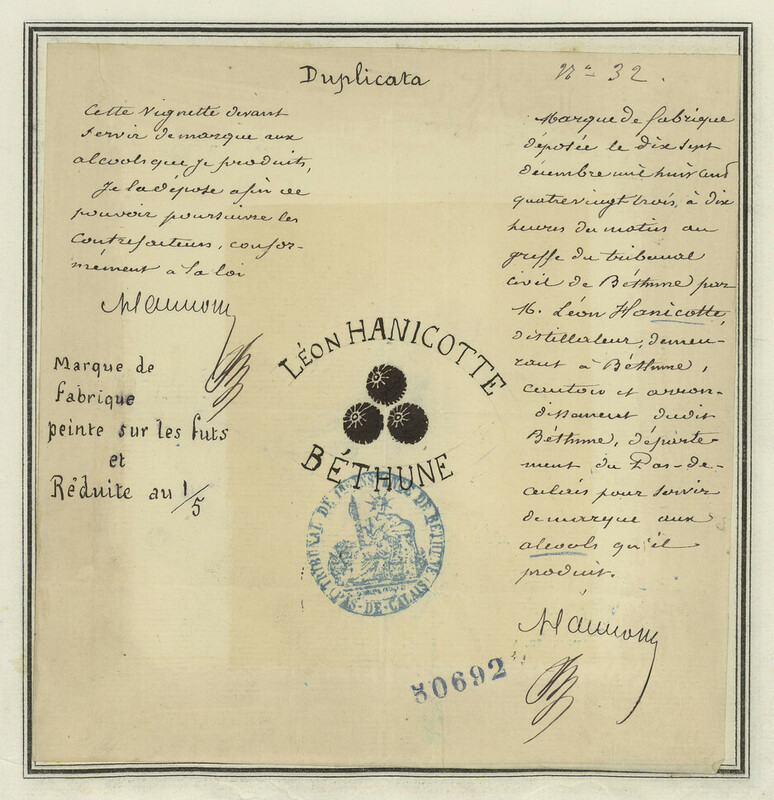 Duplicata
Nº 32.
Cette vignette devant
servir de marque aux
alcools que je produits,
Je la dépose afin de
pouvoir poursuivre les
Contrefacteurs, confor-
mément à la loi
Marque de
fabrique
peinte sur les futs
et
Réduite au 1/5
LÉON HANICOTTE
BÉTHUNE
TRIBUNAL DE 1RE INSTANCE DE BÉTHUNE
(PAS-DE-CALAIS)
50692
Marque de fabrique
déposée le dix sept
décembre mil huit cent
quatre vingt trois, à dix
heures du matin au
greffe du tribunal
civil de Béthune par
M. Léon Hanicotte,
distillateur, demeu-
rant à Béthune,
canton et arron-
dissement dudit
Béthune, départe-
ment du Pas-de-
calais pour servir
de marque aux
alcools qu'il
produit.